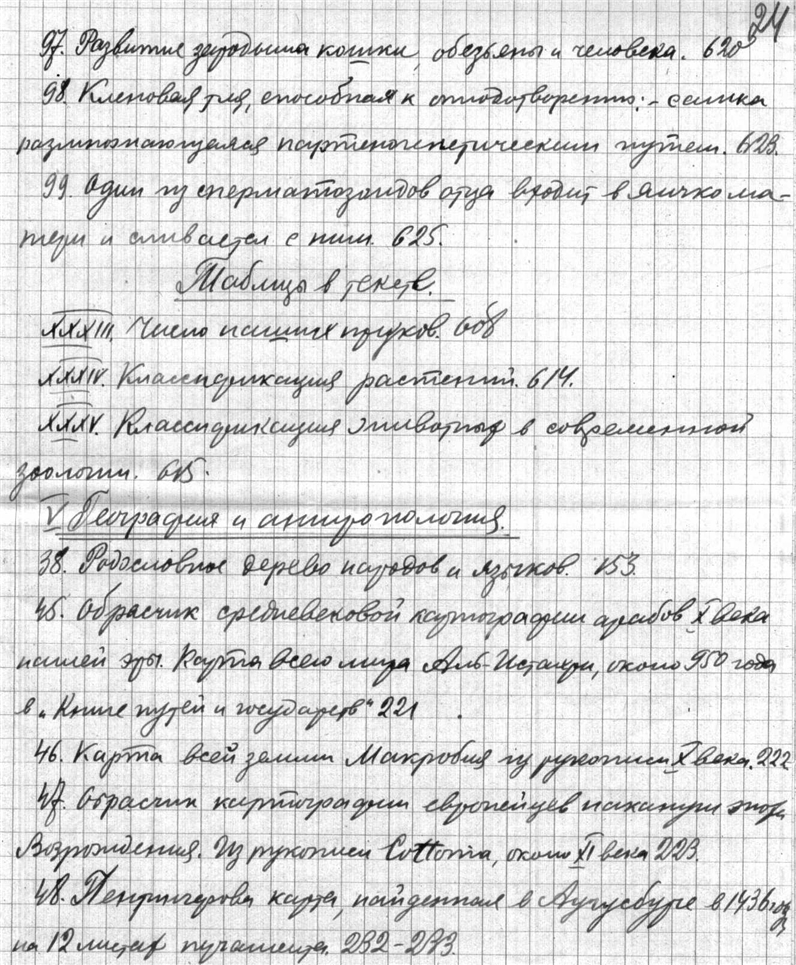 24
97. Развитие зародыша кошки, обезьяны и человека. 620
98. Кленовая тля, способная к оплодотворению: – самка
размножающаяся партеногенетическим путем. 623.
99. Один из сперматозоидов отца входит в яичко ма-
тери и сливается с ним. 625.
Таблицы в тексте.
XXXIII. Число наших предков. 608
XXXIV. Классификация растений. 614.
XXXV. Классификация животных в современной
зоологии. 615.
V География и антропология.
38. Родословное дерево народов и языков. 153.
45. Образчик средневековой картографии арабов X века
нашей эры. Карта всего мира Аль-Истахри, около 950 года
в „Книге путей и государств“ 221
46. Карта всей земли Макробия из рукописи X века. 222
47. Образчик картографии европейцев накануне эпохи
Возрождения. Из рукописи Cottonia, около XI века 223.
48. Пентингерова карта, найденная в Аугусбурге в 1436 году
на 12 листах пергамента. 232–233.